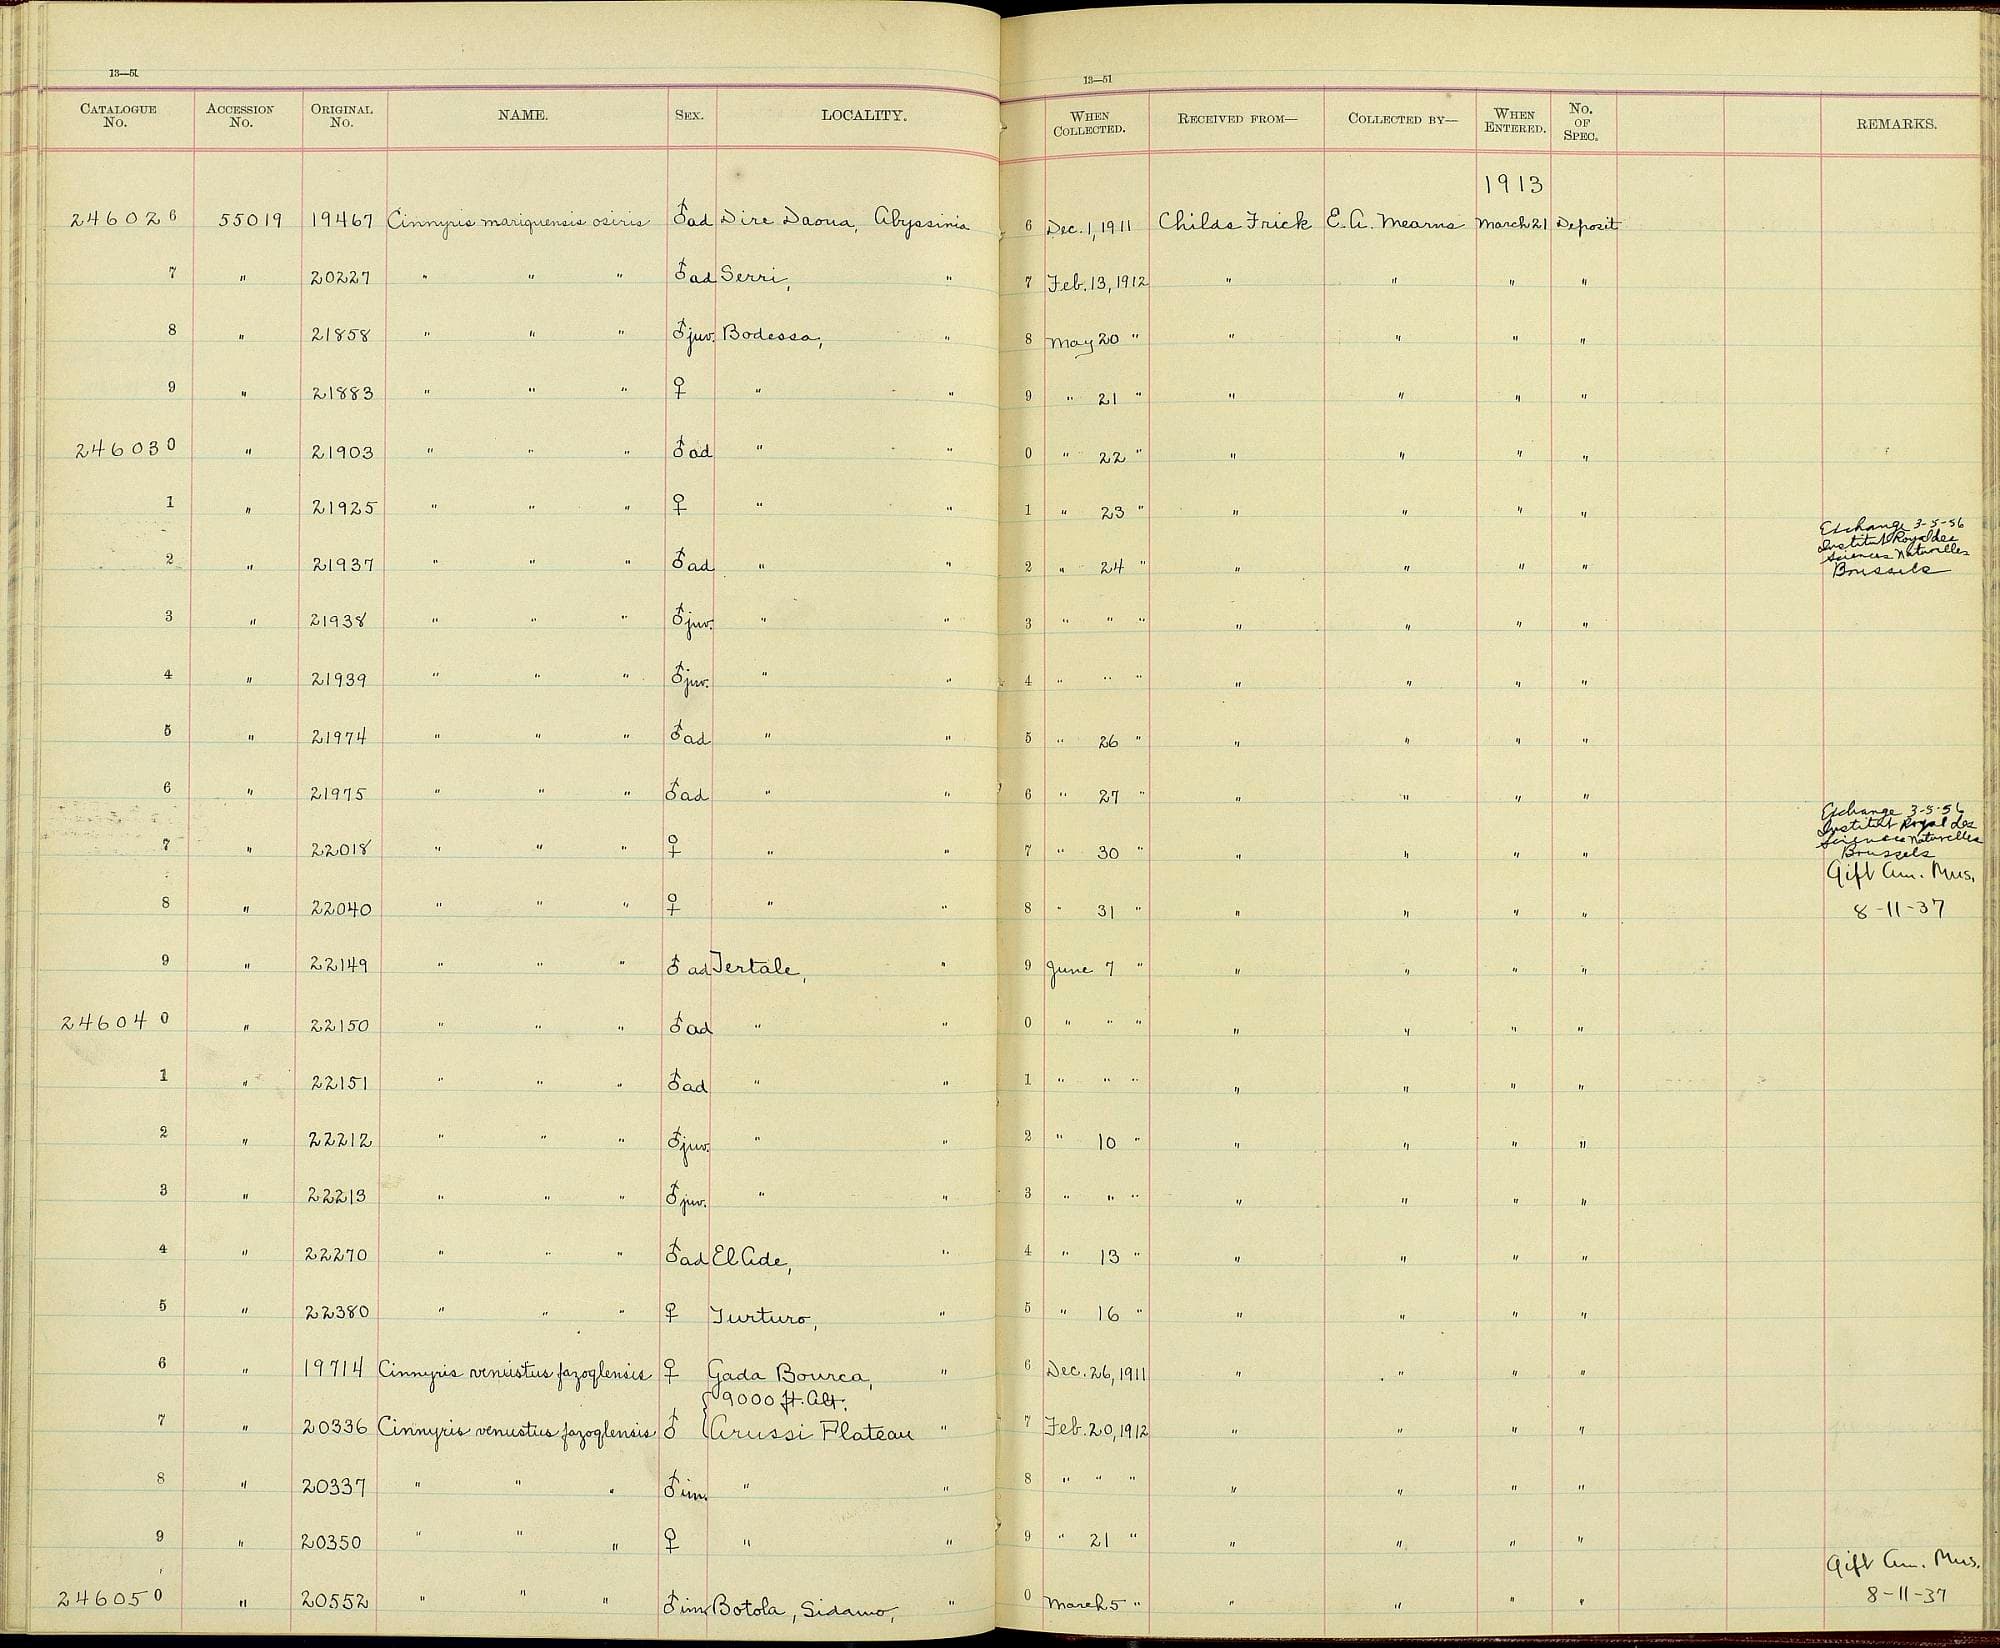 13—51
13—51
CATALOGUE No. ACCESSION No. ORIGINAL No. NAME. SEX. LOCALITY. WHEN COLLECTED. RECEIVED FROM— COLLECTED BY— WHEN ENTERED. No. OF SPEC. REMARKS.
1913
246026 55019 19467 Cinnyris mariquensis osiris ♂ad Dire Daoua, Abyssinia 6 Dec. 1, 1911 Childs Frick E. A. Mearns March 21 Deposit
7 " 20227 " " " ♂ad Serri, " 7 Feb. 13, 1912 " " " "
8 " 21858 " " " ♂juv. Bodessa, " 8 May 20 " " " " "
9 " 21883 " " " ♀ " " 9 " 21 " " " " "
246030 " 21903 " " " ♂ad " " 0 " 22 " " " " "
1 " 21925 " " " ♀ " " 1 " 23 " " " " "
2 " 21937 " " " ♂ad " " 2 " 24 " " " " " Exchange 3-5-56
Institut Royal des
Sciences Naturelles
Brussels
3 " 21938 " " " ♂juv. " " 3 " " " " " " "
4 " 21939 " " " ♂juv. " " 4 " " " " " " "
5 " 21974 " " " ♂ad " " 5 " 26 " " " " "
6 " 21975 " " " ♂ad " " 6 " 27 " " " " "
7 " 22018 " " " ♀ " " 7 " 30 " " " " " Exchange 3-5-56
Institut Royal des
Sciences Naturelles
Brussels
8 " 22040 " " " ♀ " " 8 " 31 " " " " " Gift Am. Mus.
8-11-37
9 " 22149 " " " ♂ad Tertale, " 9 June 7 " " " " "
246040 " 22150 " " " ♂ad " " 0 " " " " " " "
1 " 22151 " " " ♂ad " " 1 " " " " " " "
2 " 22212 " " " ♂juv. " " 2 " 10 " " " " "
3 " 22213 " " " ♂juv. " " 3 " " " " " " "
4 " 22270 " " " ♂ad El Ade, " 4 " 13 " " " " "
5 " 22380 " " " ♀ Turturo, " 5 " 16 " " " " "
6 " 19714 Cinnyris venustus fazoqlensis ♀ Gada Bourca, " 6 Dec. 26, 1911 " " " "
9000 ft. Alt.
7 " 20336 Cinnyris venustus fazoqlensis ♂ Arussi Plateau " 7 Feb. 20, 1912 " " " "
8 " 20337 " " " ♂im. " " 8 " " " " " " "
9 " 20350 " " " ♀ " " 9 " 21 " " " " "
246050 " 20552 " " " ♂im Botola, Sidamo, " 0 March 5 " " " " " Gift Am. Mus.
8-11-37